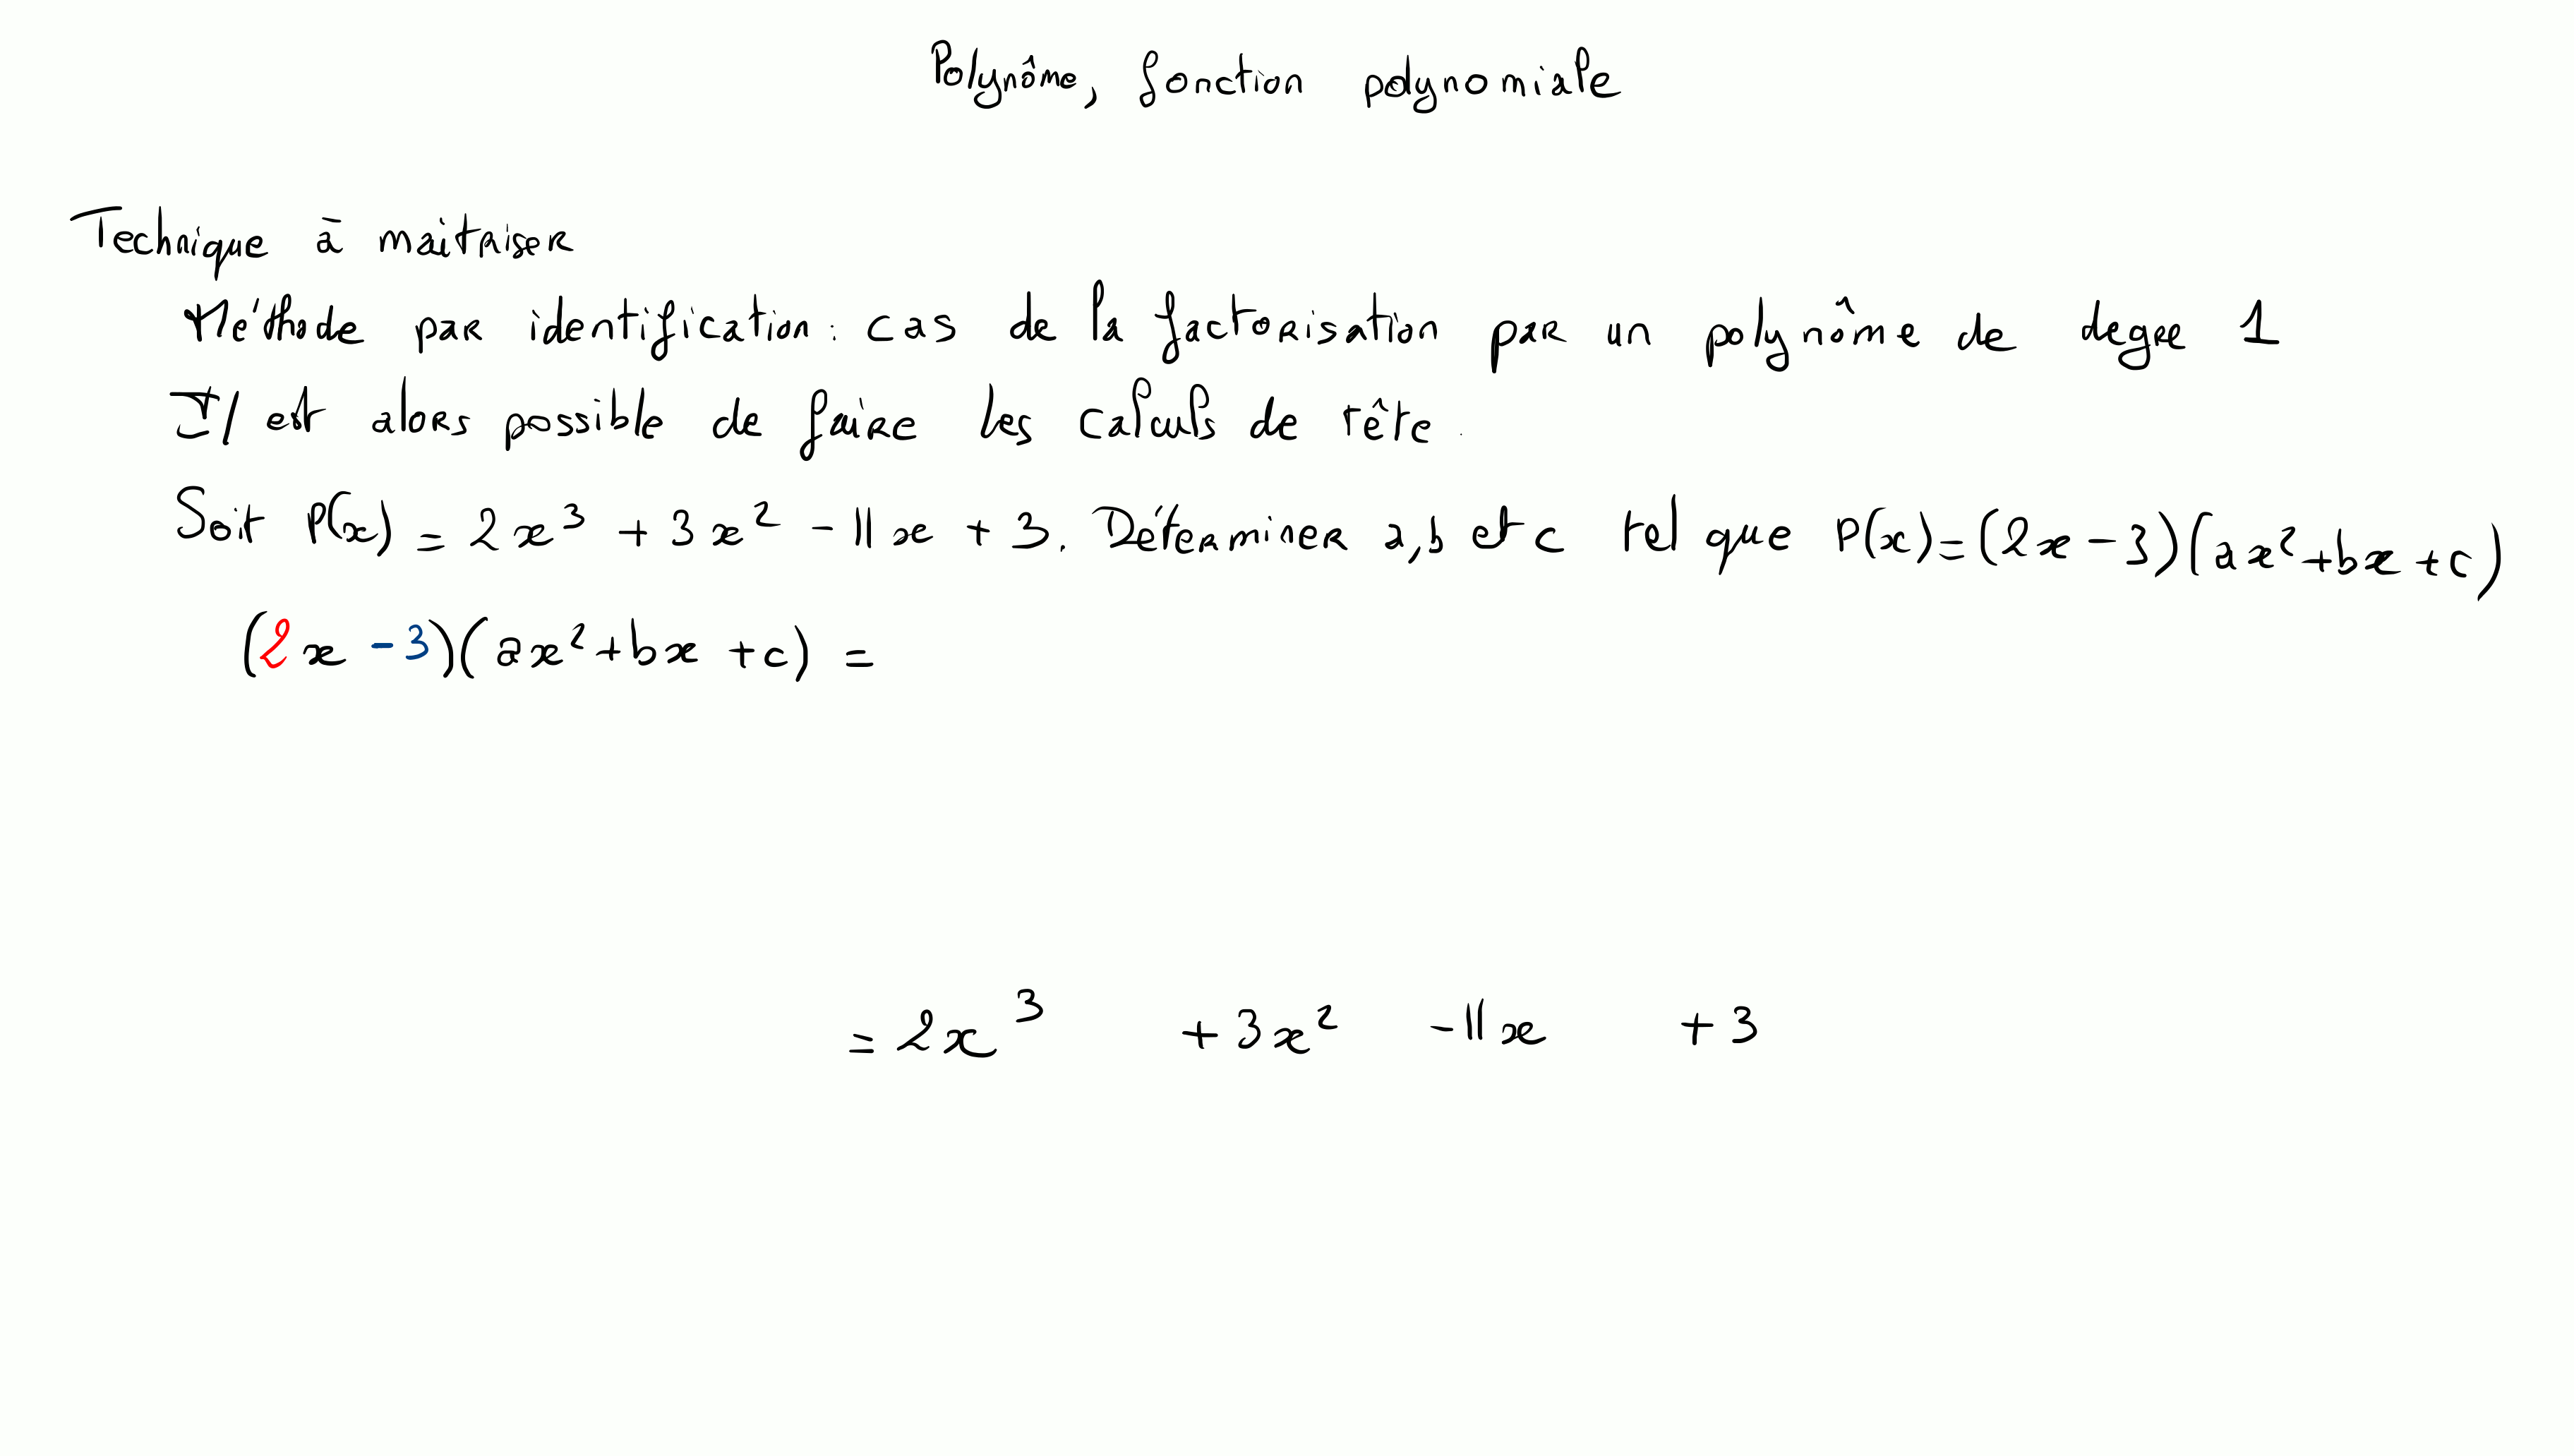 Polynôme, fonction polynomiale
Technique à maitriser
Méthode par identification : cas de la factorisation par un polynôme de degre 1
Il est alors possible de faire les calculs de tête.
Soit P(x) = 2x³ + 3x² - 11x + 3. Déterminer a, b et c tel que P(x) = (2x - 3)(ax² + bx + c)
(2x - 3)(ax² + bx + c) =
= 2x³ + 3x² - 11x + 3